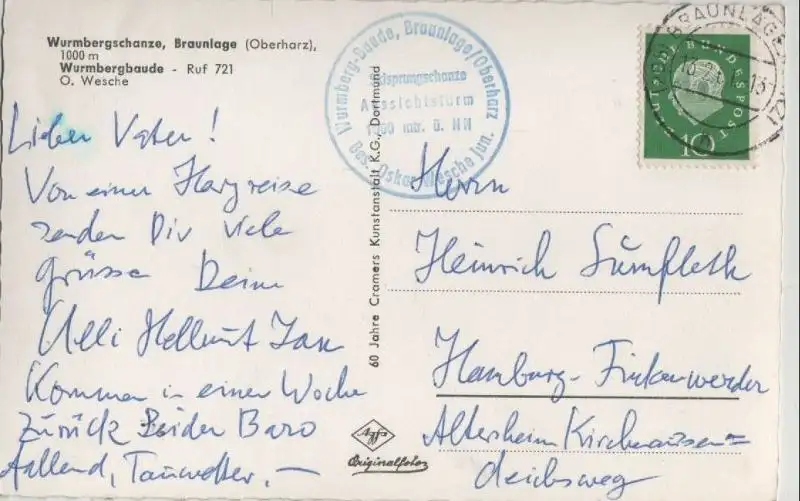 Wurmbergschanze, Braunlage (Oberharz),
1000 m
Wurmbergbaude - Ruf 721
O. Wesche
Lieber Vater!
Von einer Harzreise
senden Dir viele
Grüsse Deine
Helli Hellmut Jan
Kommen in einer Woche
zurück Leider Baro
fallend, Tauwetter. —
60 Jahre Cramers Kunstanstalt K.G., Dortmund
Agfa
Originalfoto
Wurmberg-Baude, Braunlage/Oberharz
Skisprungschanze
Aussichtsturm
1000 mtr. ü. NN
Bes. Oskar Wesche jun.
BRAUNLAGE
DEUTSCHE BUNDESPOST
10
Herrn
Heinrich Sumfleth
Hamburg-Finkenwerder
Altersheim
deichsweg